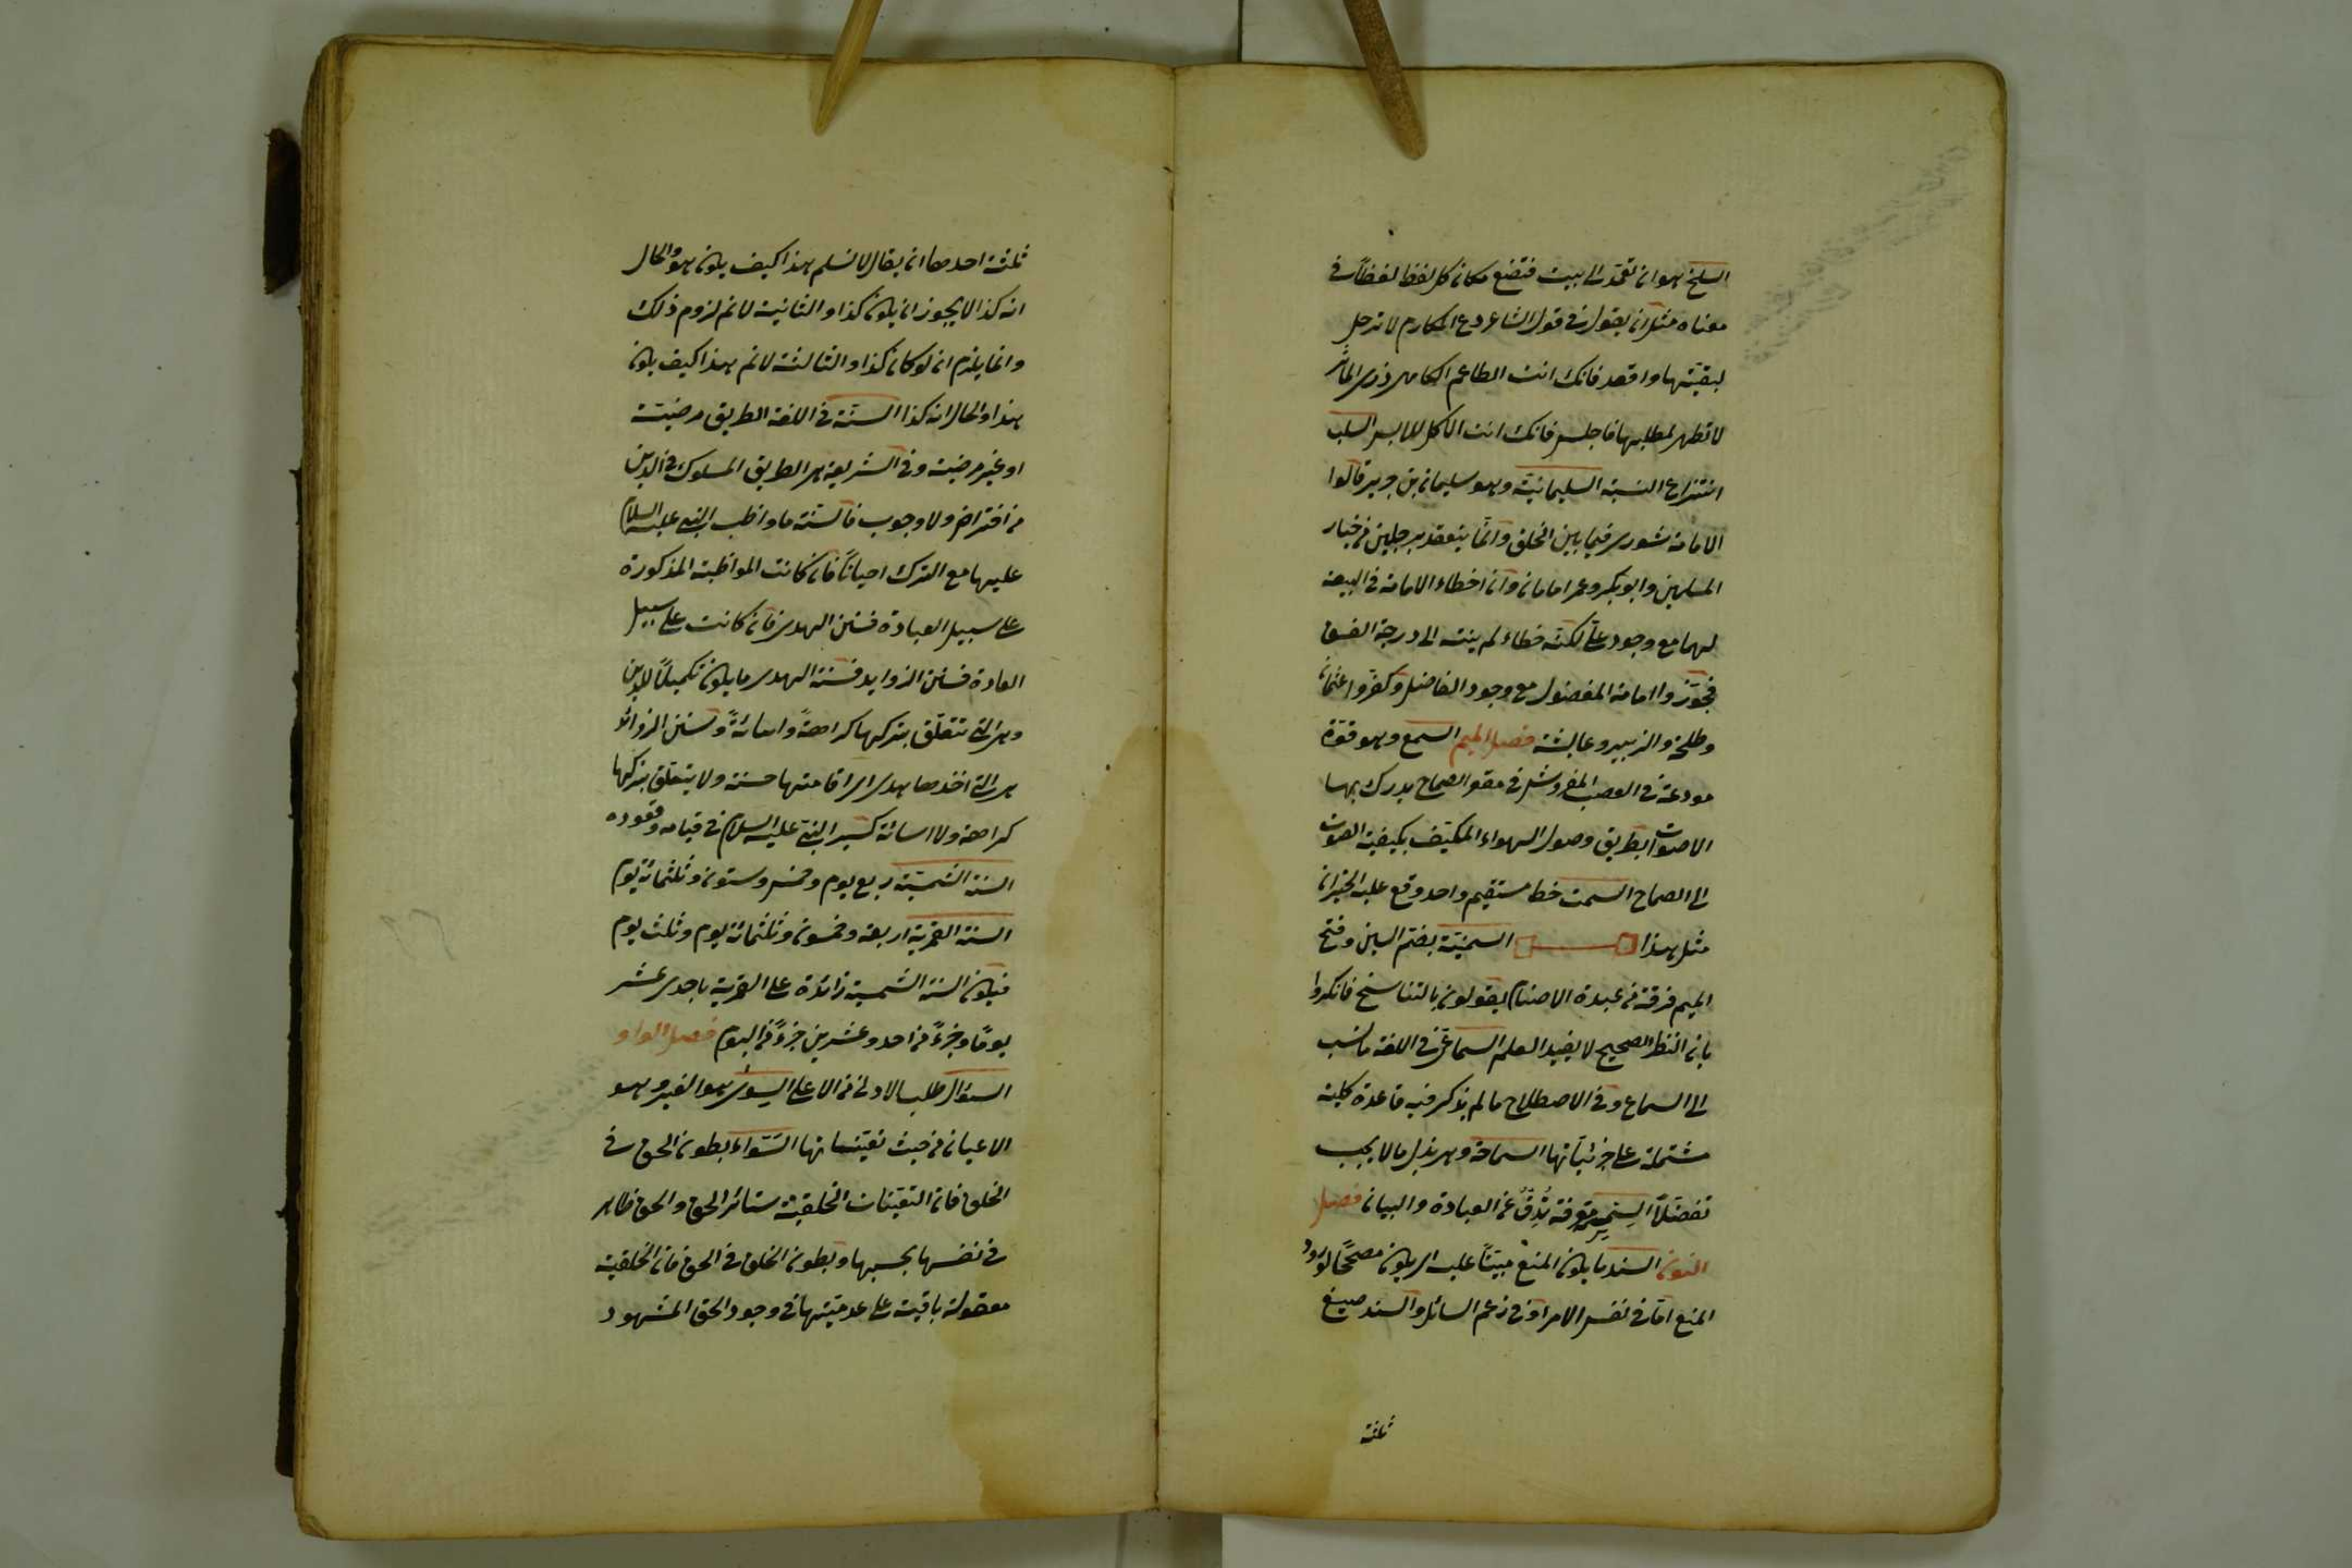 السلخ هو ان تعمد الى بيت فتضع مكان كل لفظ لفظا في
معناه مثل ان يقول في قول الشاعر دع المكارم لا ترحل
لبغيتها واقعد فانك انت الطاعم الكاسى ذر المآثر
لا تظهر لمطلبها فاجلس فانك انت الآكل اللابس السلب
انتزاع النسبة السليمانية وهو سليمان بن جرير قالوا
الامامة شورى فيما بين الخلق وانما ينعقد برجلين من خيار
المسلمين وابو بكر وعمر امامان وان اخطاء الامامة في البيعة
لهما مع وجود على لكنه خطاء لم ينته الى درجة الفسق
فجوّزوا امامة المفضول مع وجود الفاضل وكفروا عثمان
وطلحة والزبير وعايشة فصل الميم السمع وهو قوة
مودعة في العصب المفروش في مقعر الصماخ يدرك بها
الاصوات بطريق وصول الهواء المكتيف بكيفية الصوت
الى الصماخ السمت خط مستقيم واحد وقع عليه الحيزان
مثل هذا السمنيّة بضم السين وفتح
الميم فرقة من عبدة الاصنام يقولون بالتناسخ فانكروا
بان النظر الصحيح لا يفيد العلم السماعى في اللغة ما نسب
الى السماع وفي الاصطلاح ما لم يذكر فيه قاعدة كلية
مشتملة على جزئياتها السماحة وهى بذل ما لا يجب
تفضّلاً السمر معرفة تُدِقُّ عن العبادة والبيان فصل
النون السند ما يكون المنع مبنيّاً عليه اى يكون مصححًا لورود
المنع امّا في نفس الامر او في زعم السائل والسند صيغ
ثلثة
ثلثة احدها ان يقال لا نسلم هذا كيف يكون هو والحال
انه كذا لا يجوز ان يكون كذا والثانية لا نم لزوم ذلك
وانما يلزم ان لو كان كذا والثالثة لا نم هذا كيف يكون
هذا والحال انه كذا السنّة في اللغة الطريق مرضيّة
او غير مرضية وفي الشريعة هى الطريق المسلوك في الدين
من افتراض ولا وجوب فالسنة ما واظب النبى عليه السلام
عليها مع الترك احيانًا فان كانت المواظبة المذكورة
على سبيل العبادة فسنن الهدى فان كانت على سبيل
العادة فسنن الزوايد فسنة الهدى ما يكون تكميلاً للدين
وهى التى تتعلّق بتركها كراهةً واسائةً وسنن الزوائد
هى التى اخذها هدى اى اقامتها حسنة ولا يتعلق بتركها
كراهة ولا اسائة كسير النبى عليه السلام في قيامه وقعوده
السنة الشمسيّة ربع يوم وخمس وستون وثلثمائة يوم
السنة القمرية اربعة وخمسون وثلثمائة يوم وثلث يوم
فيكون السنة الشمسية زائدة على القمرية باحدى عشر
يومًا وجزءً من احد وعشرين جزءً من اليوم فصل الواو
السؤال طلب الادنى من الاعلى السوى هو الغير وهو
الاعيان من حيث تعيّناتها السَّواء بطون الحق في
الخلق فان التعيّنات الخلقيّة ستائر الحق والحق ظاهر
في نفسها بحسبها وبطون الخلق في الحق فان الخلقية
معقولة باقية على عدميّتها في وجود الحق المشهود